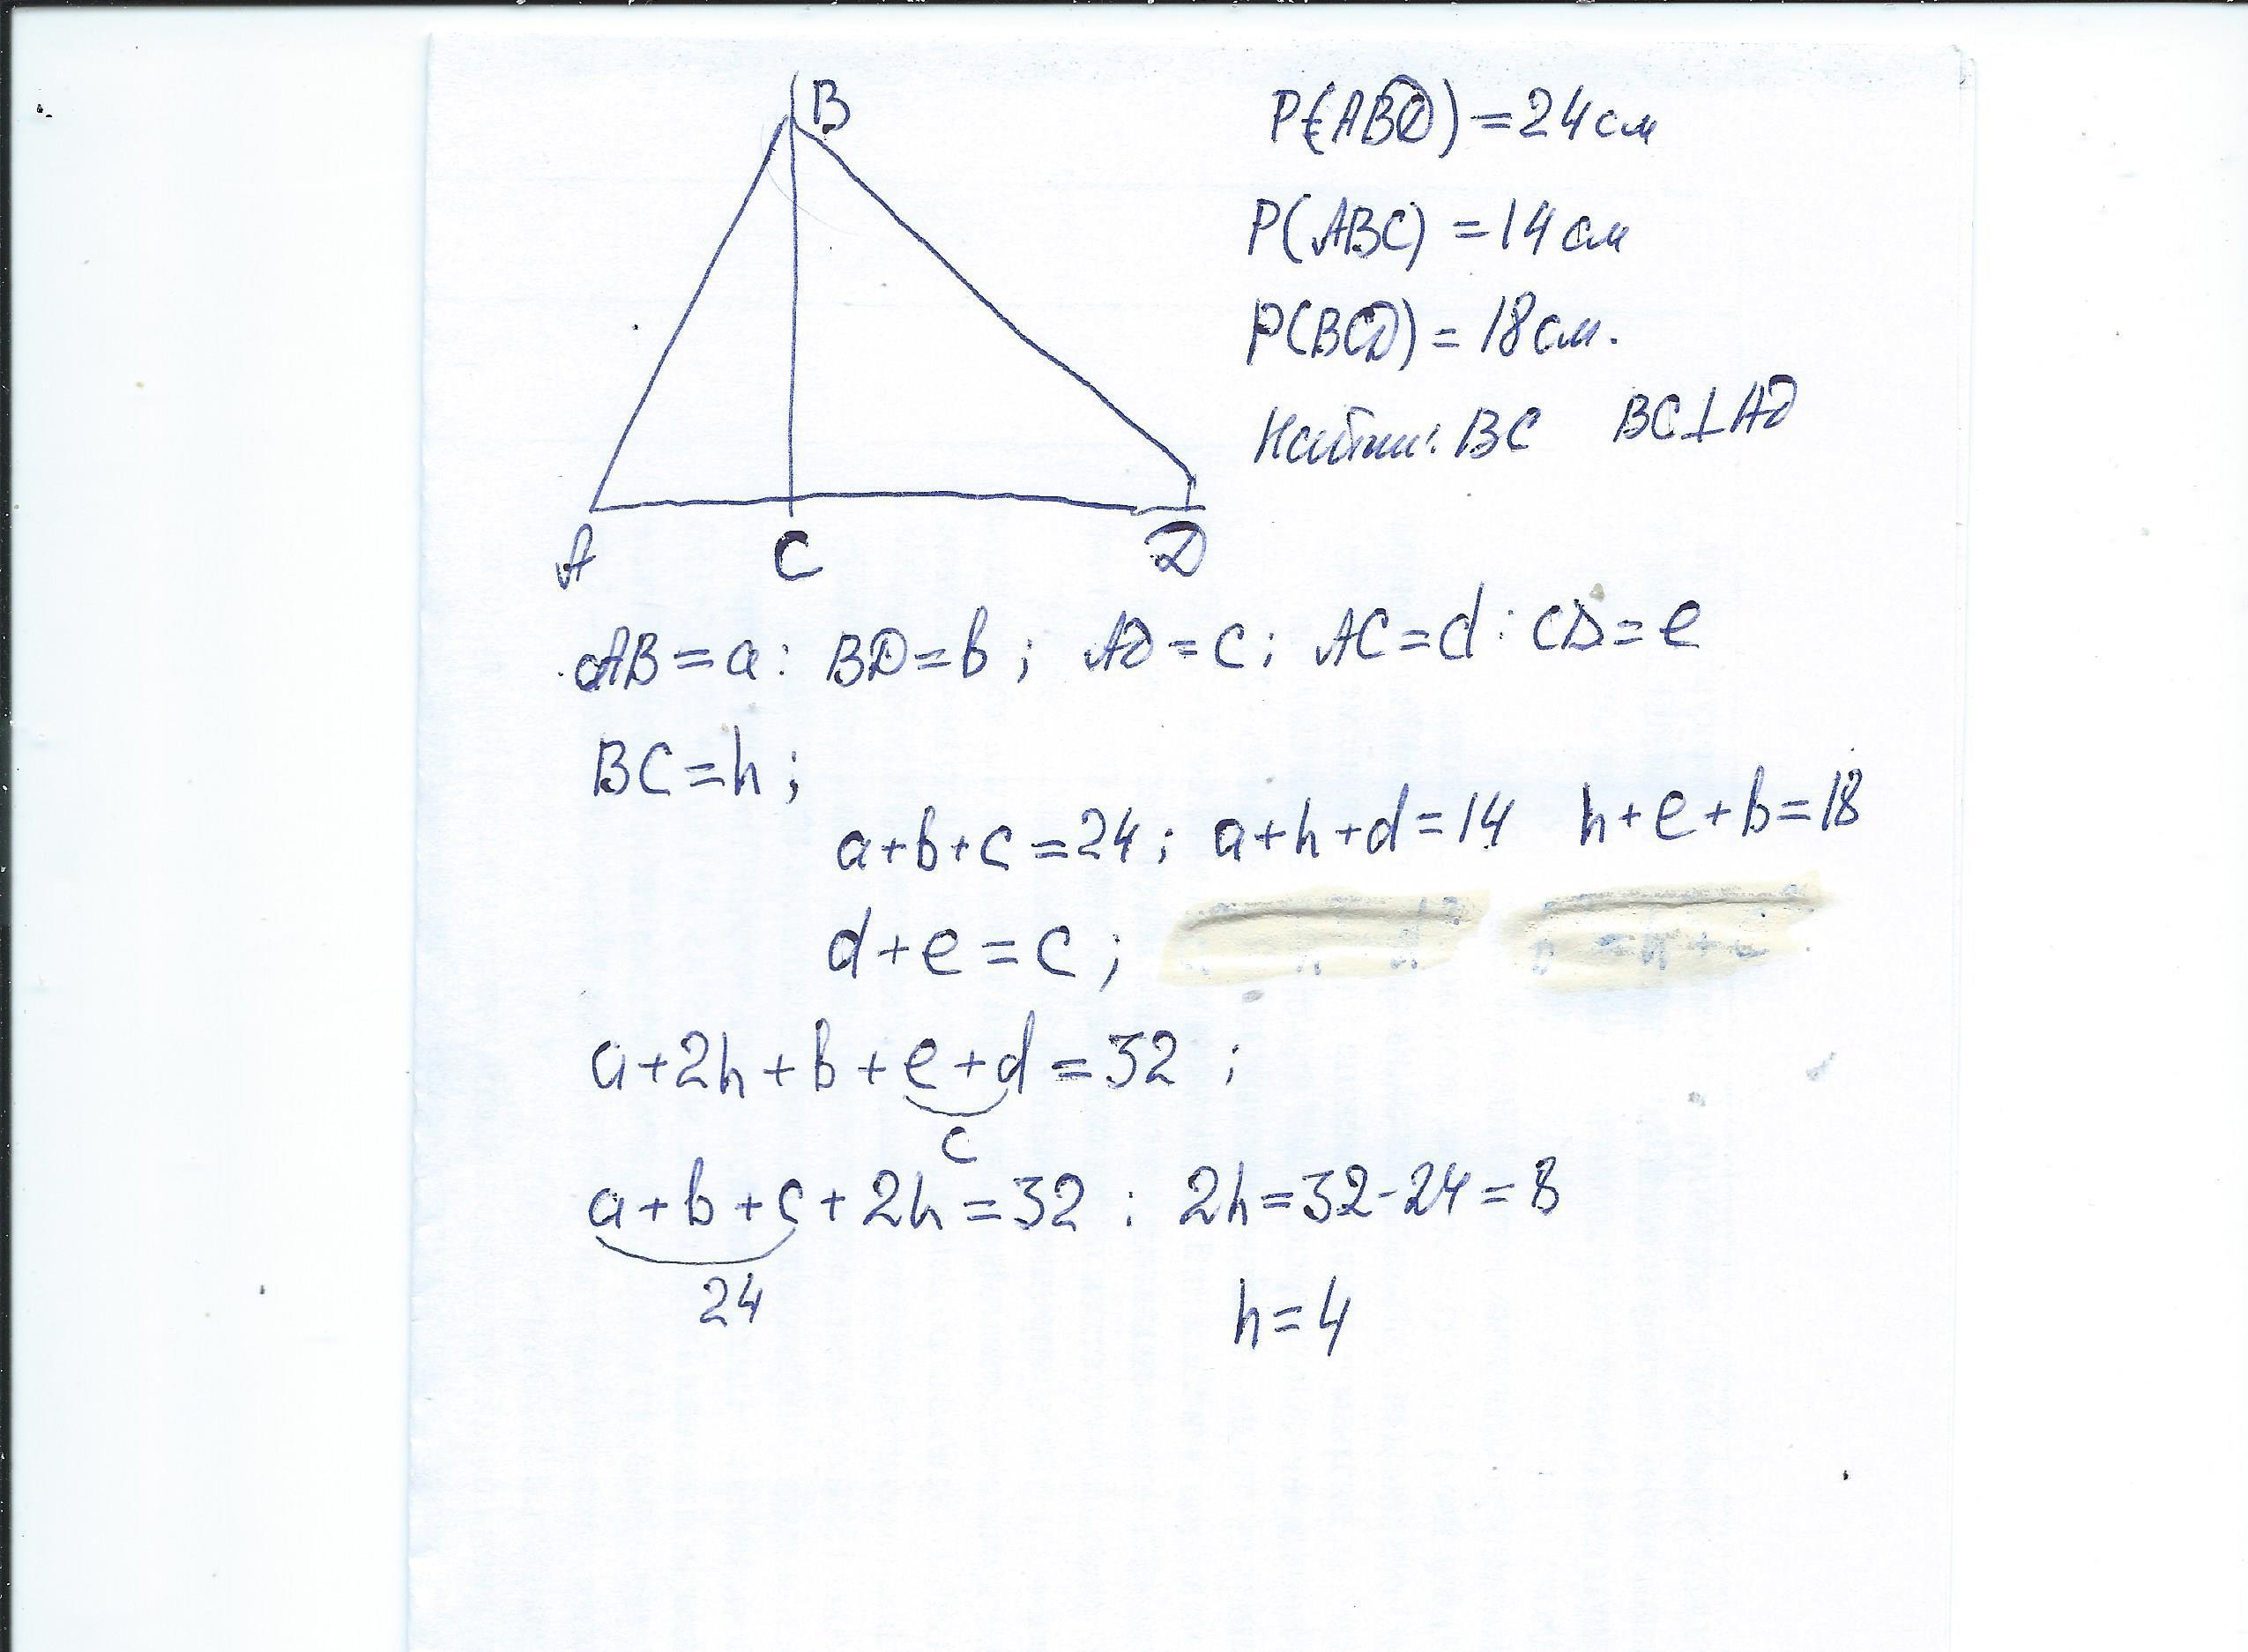 B
P(ABD) = 24 см
P(ABC) = 14 см
P(BCD) = 18 см.
Найти: BC BC⊥AD
A C D
AB = a: BD = b; AD = c; AC = d: CD = e
BC = h;
a+b+c=24; a+h+d=14 h+e+b=18
d+e=c;
a+2h+b+e+d=32;
c
a+b+c+2h=32: 2h=32-24=8
24
h=4